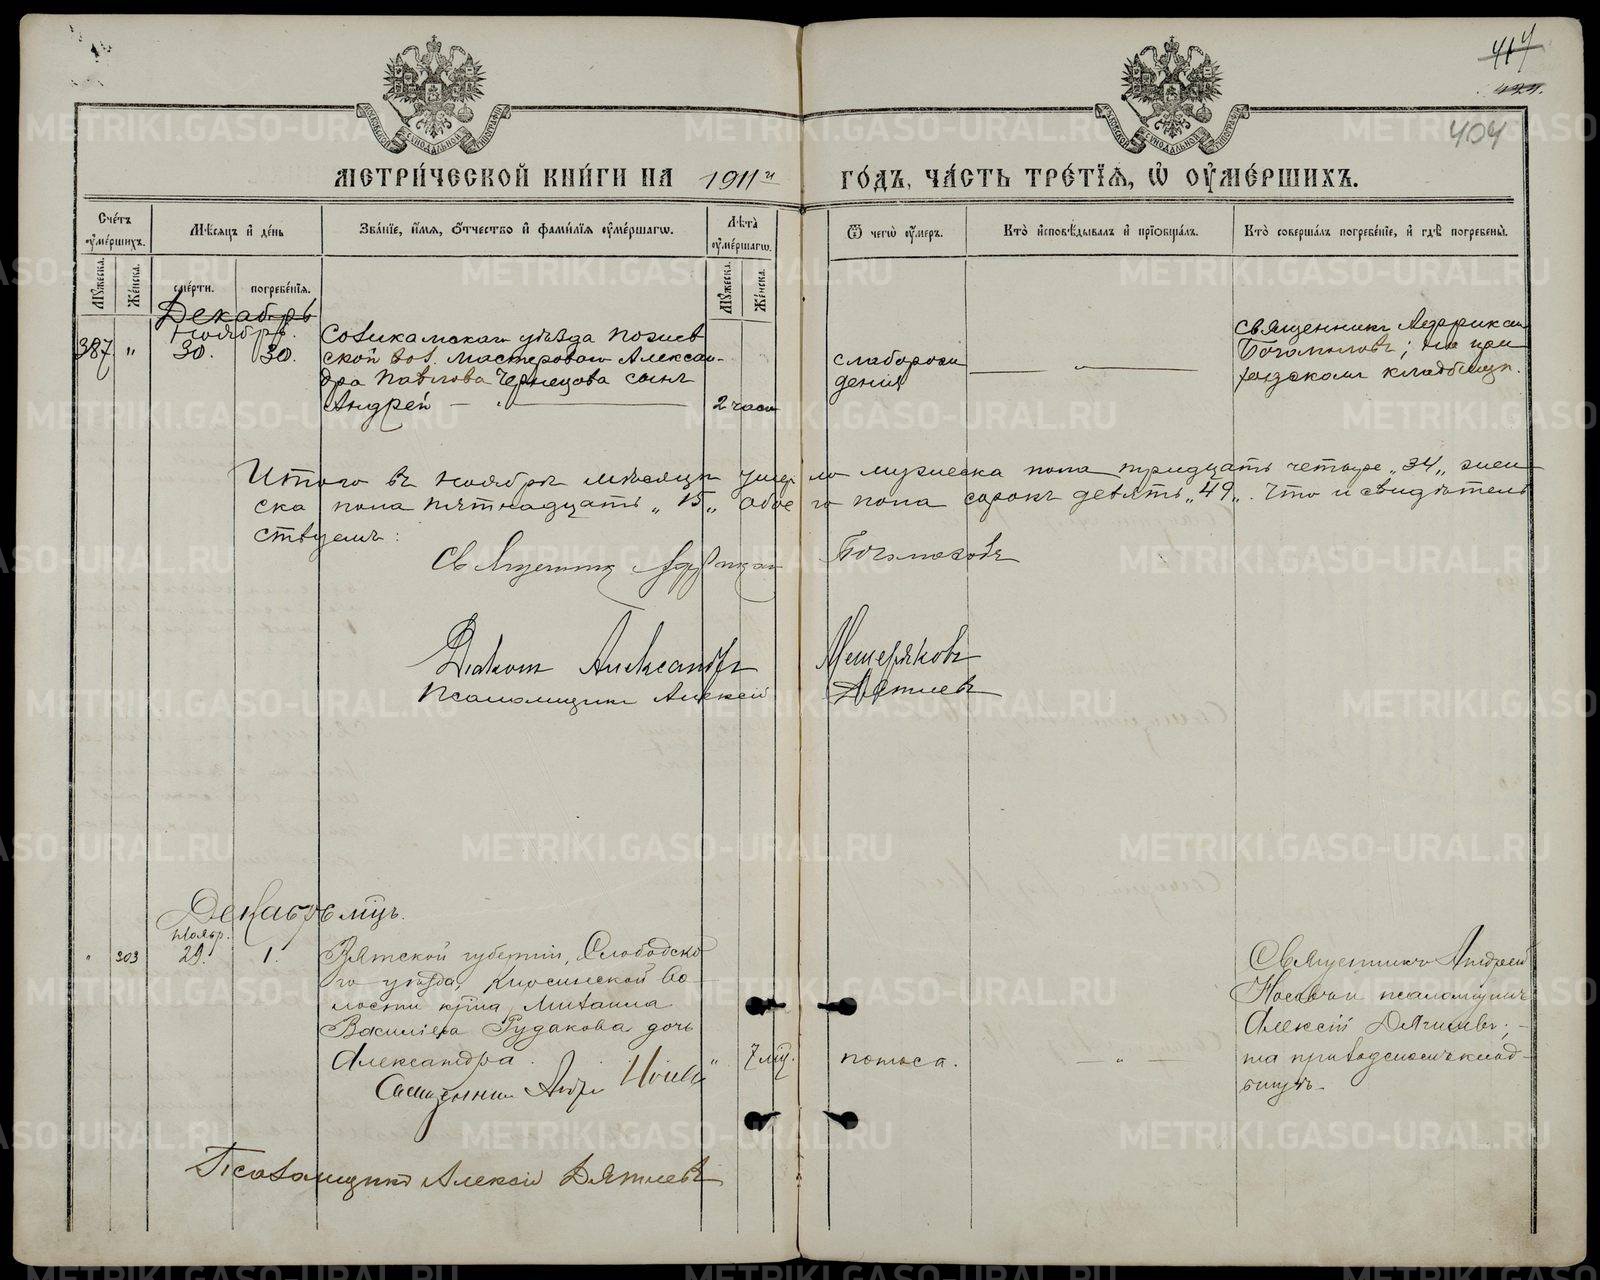 414
404
МЕТРИ́ЧЕСКОЙ КНИ́ГИ НА 1911й ГО́ДЪ, ЧА́СТЬ ТРЕ́ТІЯ, Ѡ ОУМЕ́РШИХЪ.
Сче́тъ оуме́ршихъ.
Му́жеска.
Же́нска.
Мѣ́сяцъ и де́нь
сме́рти.
погребе́нія.
Зва́ніе, и́мя, о́тчество и фами́лія оуме́ршагѡ.
Лѣ́та оуме́ршагѡ.
Му́жеска.
Же́нска.
Ѿ чегѡ̀ оу́меръ.
Кто̀ исповѣ́дывалъ и пріобща́лъ.
Кто̀ соверша́лъ погребе́ніе, и гдѣ̀ погребены̀.
Декабрь
Ноябрь.
387 " 30. 30.
Соликамскаго уѣзда Пожев
ской вол. мастерового Алексан-
дра Павлова Чернецова сынъ
Андрей
2 часа
слаборож
денія
Священникъ Аффрикан
Богомоловъ; на при
ходскомъ кладбищѣ.
Итого въ Ноябрѣ мѣсяцѣ умер ло мужеска пола тридцать четыре „34„ жен
ска пола пятнадцать „15„ обое го пола сорокъ девять „49„. Что и свидѣтель
ствуемъ:
Священникъ Аффрикан Богомоловъ
Діаконъ Александръ Мещеряковъ
Псаломщикъ Алексій Дятлевъ
Декабрь мцъ.
Ноябр.
" 303 29. 1.
Вятской губерніи, Слободско
го уѣзда, Кирсинской во
лости крна Михаила
Васильева Рудакова дочь
Александра.
" 7 мц.
поноса.
Священникъ Андрей
псаломщикъ
Алексій Дятлевъ;
на приходскомъ клад-
бищѣ.
Священникъ Андр
Псаломщикъ Алексій Дятлевъ
METRIKI.GASO-URAL.RU